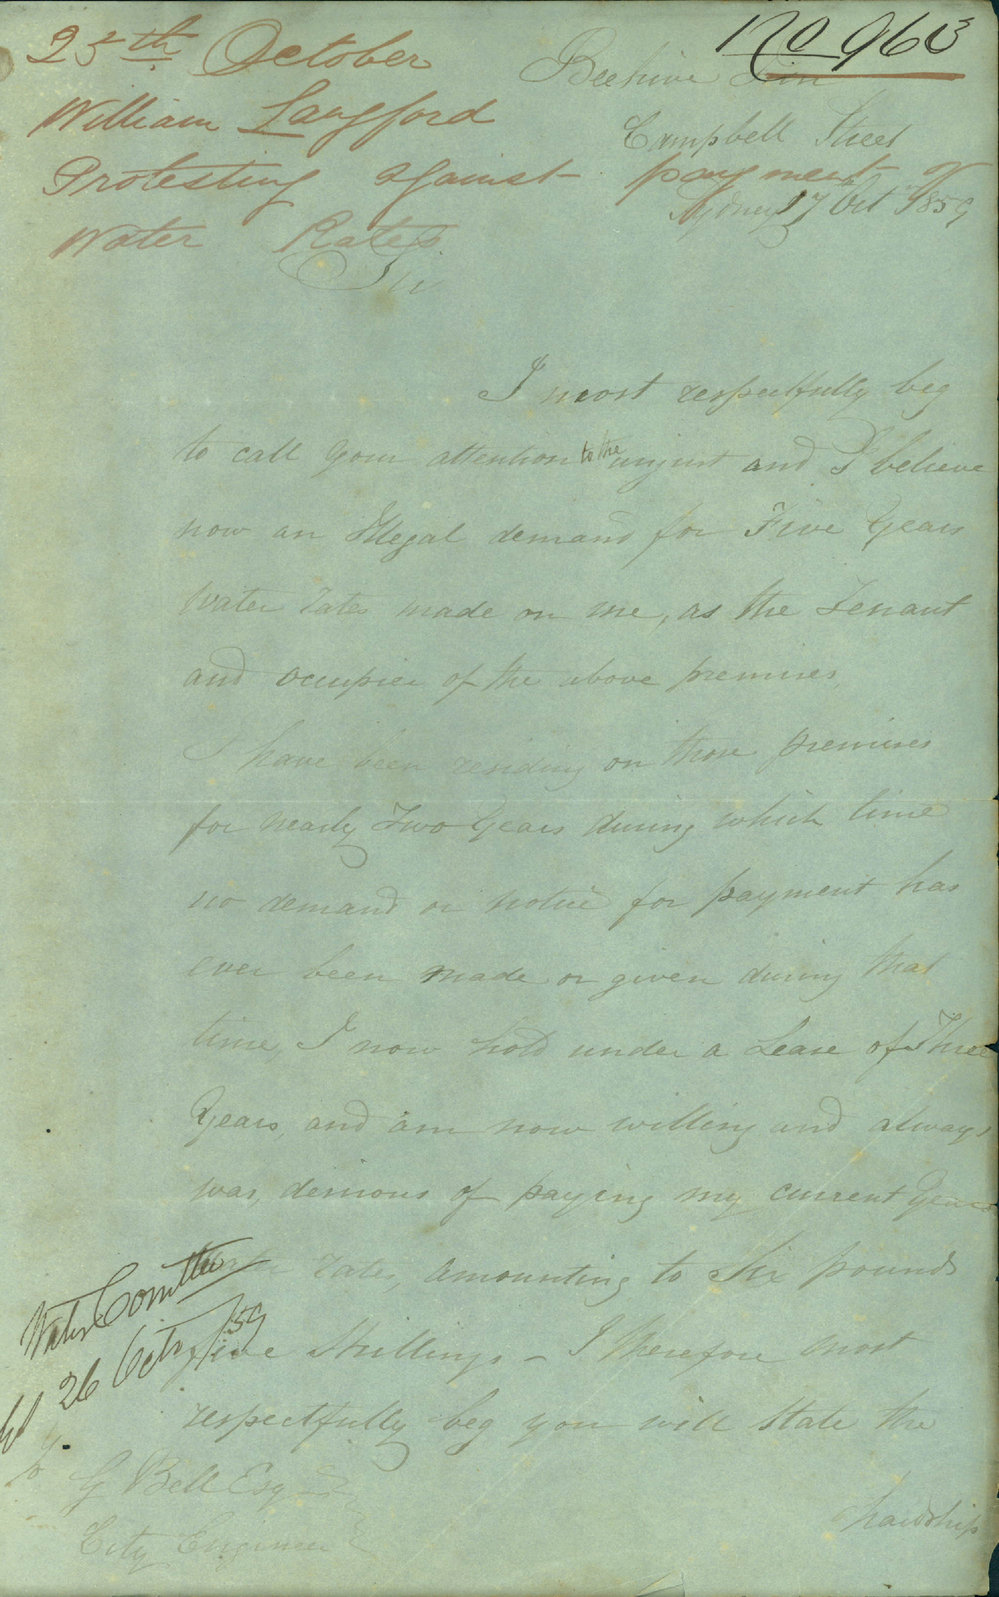 No 963
25th October
William Langford
Protesting against payment of
Water Rates
Beehive Inn
Campbell Street
Sydney 17 Oct 1859
Sir
I most respectfully beg
to call your attention to the unjust and I believe
now an Illegal demand for Five Years
Water rates made on me, as the Tenant
and occupier of the above premises
I have been residing on those premises
for nearly Two Years during which time
no demand or notice for payment has
ever been made or given during that
time, I now hold under a Lease of Three
Years, and am now willing and always
was, desirous of paying my current Years
Water rates, amounting to Six pounds
five Shillings - I therefore most
respectfully beg you will state the
hardship
Water Comittee
26 Octr /59
To
G Bell Esqr
City Engineer